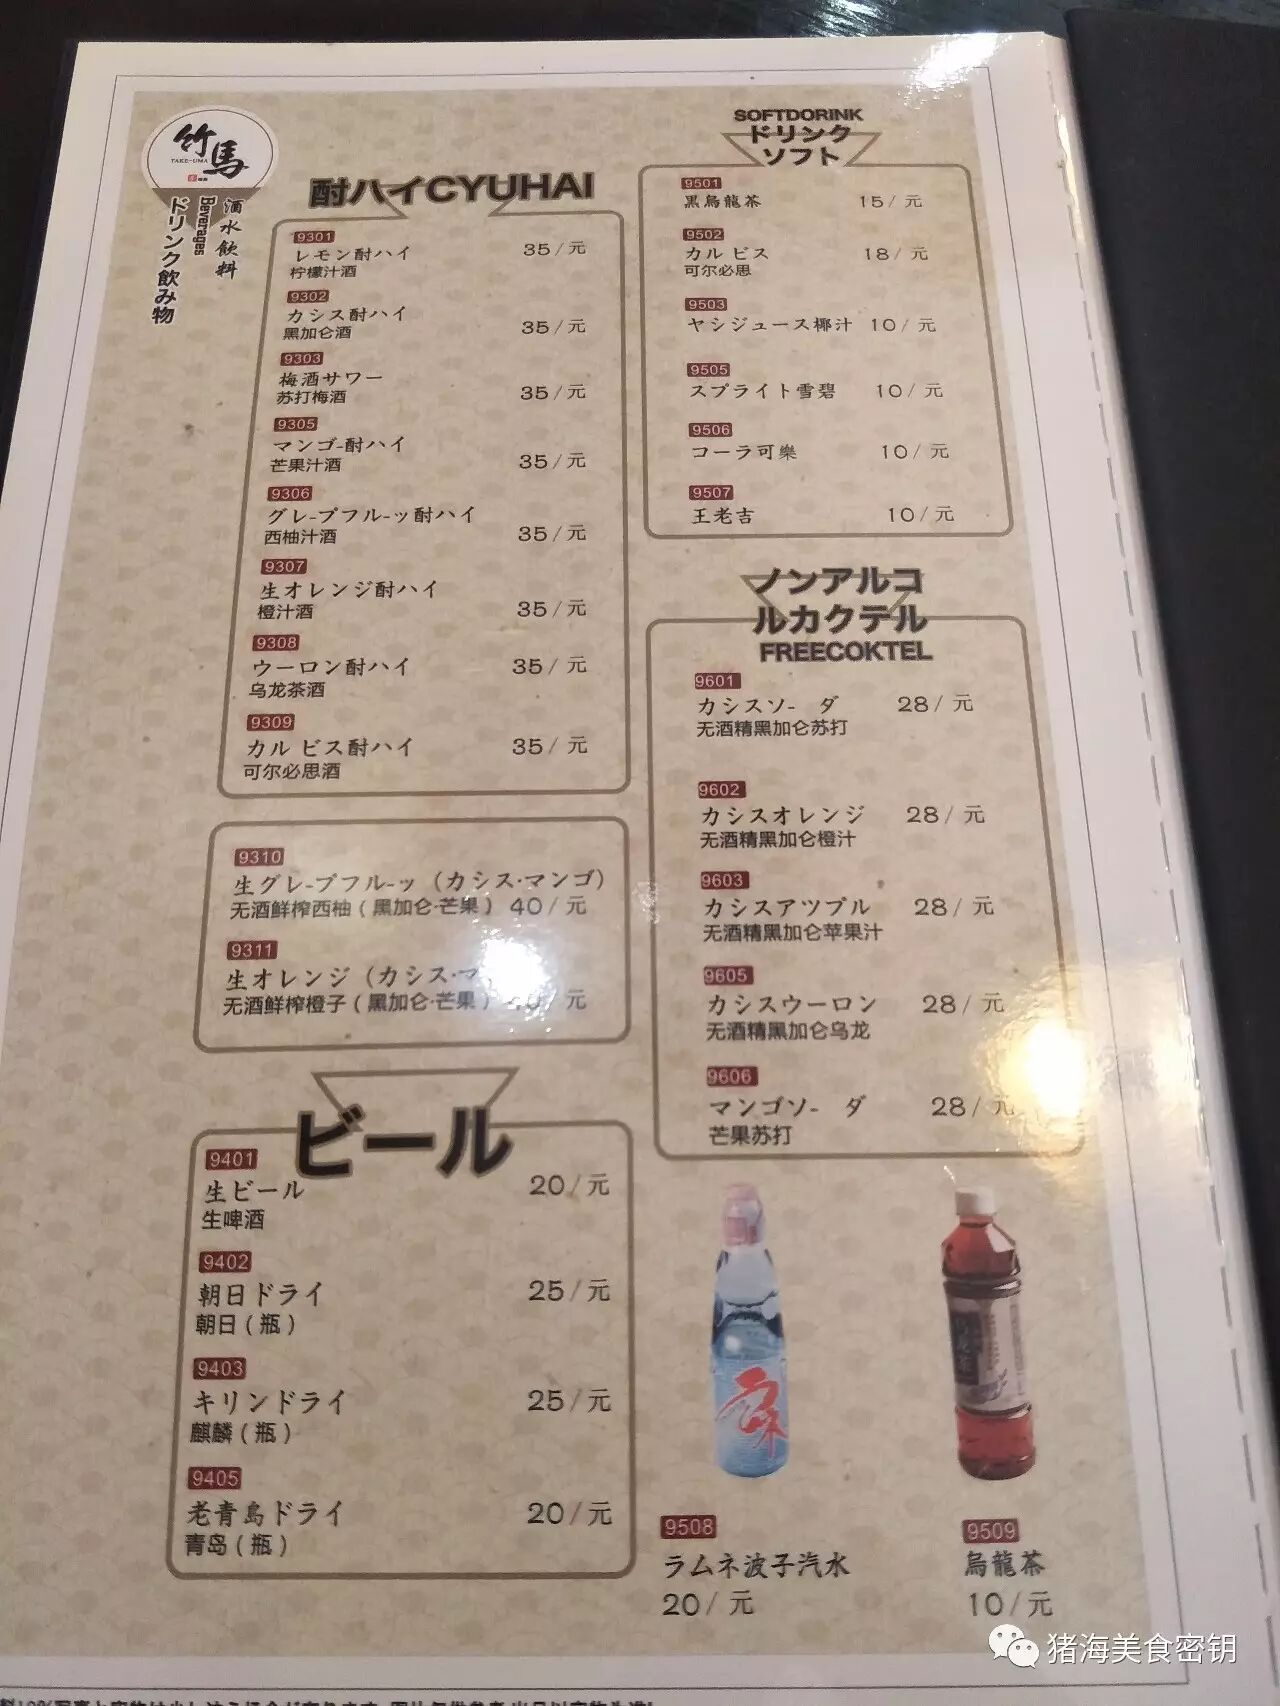 竹馬
TAKE-UMA
酒水飲料
Beverages
ドリンク飲み物
酎ハイCYUHAI
9301
レモン酎ハイ 35/元
柠檬汁酒
9302
カシス酎ハイ
黑加仑酒 35/元
9303
梅酒サワー
苏打梅酒 35/元
9305
マンゴ-酎ハイ
芒果汁酒 35/元
9306
グレ-プフル-ッ酎ハイ
西柚汁酒 35/元
9307
生オレンジ酎ハイ
橙汁酒 35/元
9308
ウーロン酎ハイ 35/元
乌龙茶酒
9309
カル ビス酎ハイ 35/元
可尔必思酒
9310
生グレ-プフル-ッ（カシス·マンゴ）
无酒鲜榨西柚（黑加仑·芒果）40/元
9311
生オレンジ（カシス·マ
无酒鲜榨橙子（黑加仑·芒果）40/元
ビール
9401
生ビール 20/元
生啤酒
9402
朝日ドライ 25/元
朝日（瓶）
9403
キリンドライ 25/元
麒麟（瓶）
9405
老青島ドライ 20/元
青岛（瓶）
SOFTDORINK
ドリンク
ソフト
9501
黒烏龍茶 15/元
9502
カル ビス 18/元
可尔必思
9503
ヤシジュース椰汁 10/元
9505
スプライト雪碧 10/元
9506
コーラ可樂 10/元
9507
王老吉 10/元
ノンアルコ
ルカクテル
FREECOKTEL
9601
カシスソ- ダ 28/元
无酒精黑加仑苏打
9602
カシスオレンジ 28/元
无酒精黑加仑橙汁
9603
カシスアツプル 28/元
无酒精黑加仑苹果汁
9605
カシスウーロン 28/元
无酒精黑加仑乌龙
9606
マンゴソ- ダ 28/元
芒果苏打
9508
ラムネ波子汽水
20/元
9509
烏龍茶
10/元
猪海美食密钥